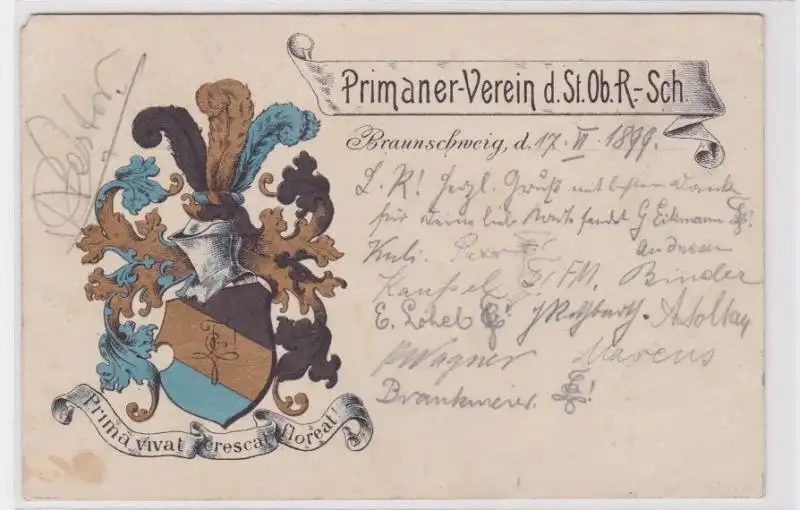 Primaner-Verein d. St. Ob. R.-Sch.
Braunschweig, d. 17. VI. 1899.
L. R! Herzl. Gruß mit besten Danke
für Deine lieb. Karte sendet G. Eikmann
Kuli. Andresen
Kaussel FM. Binder
E. Lohel J Rothbarth. A Soltau
Wagner Marcus
Brankmeier.
Prima vivat crescat floreat!